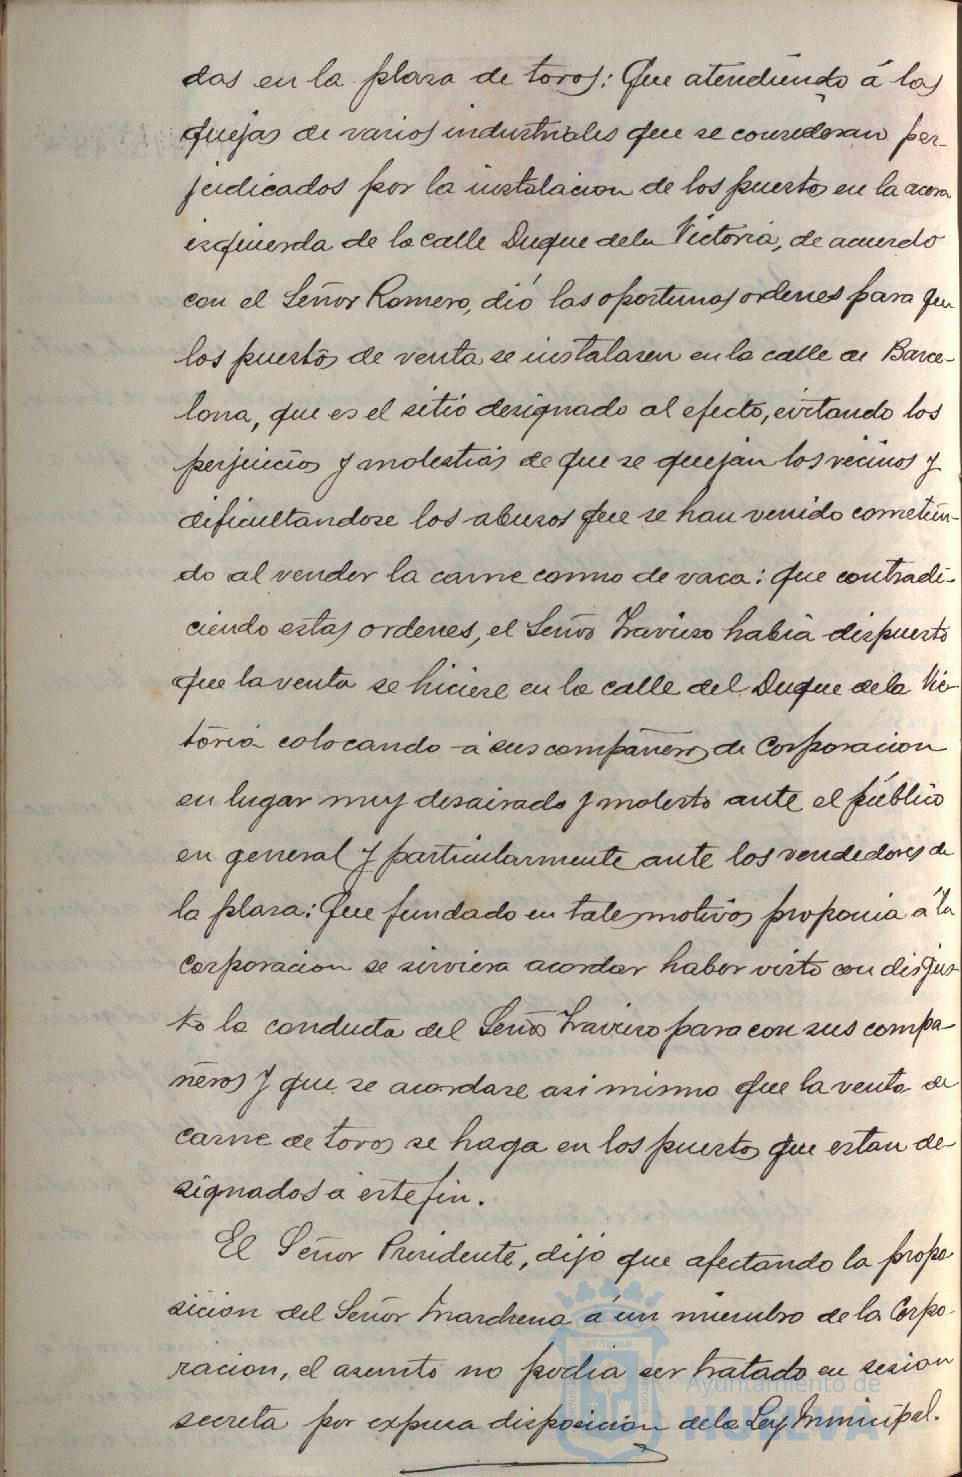 das en la plaza de toros: Que atendiendo á las
quejas de varios industriales que se consideran per-
judicados por la instalacion de los puestos en la acera
izquierda de la calle Duque dela Victoria, de acuerdo
con el Señor Romero, dió las oportunas ordenes para que
los puestos de venta se instalasen en la calle de Barce-
lona, que es el sitio designado al efecto, evitando los
perjuicios y molestias de que se quejan los vecinos y
dificultandose los abusos que se han venido cometien-
do al vender la carne como de vaca: que contradi-
ciendo estas ordenes, el Señor Travieso habia dispuesto
que la venta se hiciese en la calle del Duque dela Vic-
toria colocando á sus compañeros de Corporacion
en lugar muy desairado y molesto ante el público
en general y particularmente ante los vendedores de
la plaza: Que fundado en tales motivos proponia á la
Corporacion se sirviera acordar haber visto con disgus-
to la conducta del Señor Travieso para con sus compa-
ñeros y que se acordase asi mismo que la venta de
carne de toros se haga en los puestos que estan de-
signados á este fin.
El Señor Presidente, dijo que afectando la propo
sicion del Señor Marchena á un miembro de la Corpo-
racion, el asunto no podia ser tratado en sesion
secreta por expresa disposicion dela Ley Municipal.
Ayuntamiento de
HUELVA